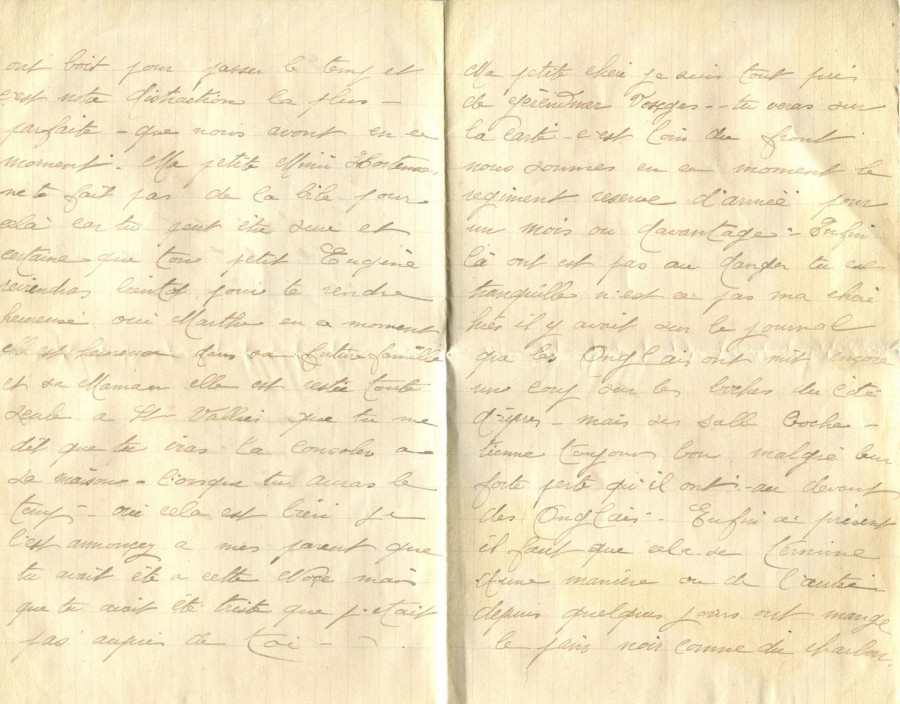 ont boit pour passer le temp et
c'est notre distraction la plus -
parfaite - que nous avont en ce
moment. Ma petite Mimi Hortense
ne te fait pas de la bile pour
celà car tu peut être sure et
certaine que ton petit Eugène
reviendras bientot pour te rendre
heureuse oui Marthe en ce moment
elle est heureuse dans sa future famille
et sa Maman elle est restée toute
seule a St Vallier que tu me
dit que tu iras la consoler a
sa maison - lorsque tu auras le
temp - oui cela est bien je
l'est annoncey a mes parent que
tu avait été a cette Noce mais
que tu avait été triste que j'etait
pas aupres de toi -
Ma petite cheri je suis tout près
de Vosges - tu veras sur
la carte c'est loin du front
nous sommes en ce moment le
regiment reserve d'armée pour
un mois ou davantage - Enfin
là ont est pas au danger tu est
tranquille n'est ce pas ma cheri
hier il y avait sur le journal
que les Onglais ont mit encore
un coup sur les boches du côté
d'Ypres - mais ses salle boche -
tienne toujours bon malgré leur
forte perte qu'il ont - au devant
des Onglais - Enfin a présent
il faut que cela se termine
d'une manière ou de l'autre
depuis quelques jours ont mange
le pain noir comme du charbon.